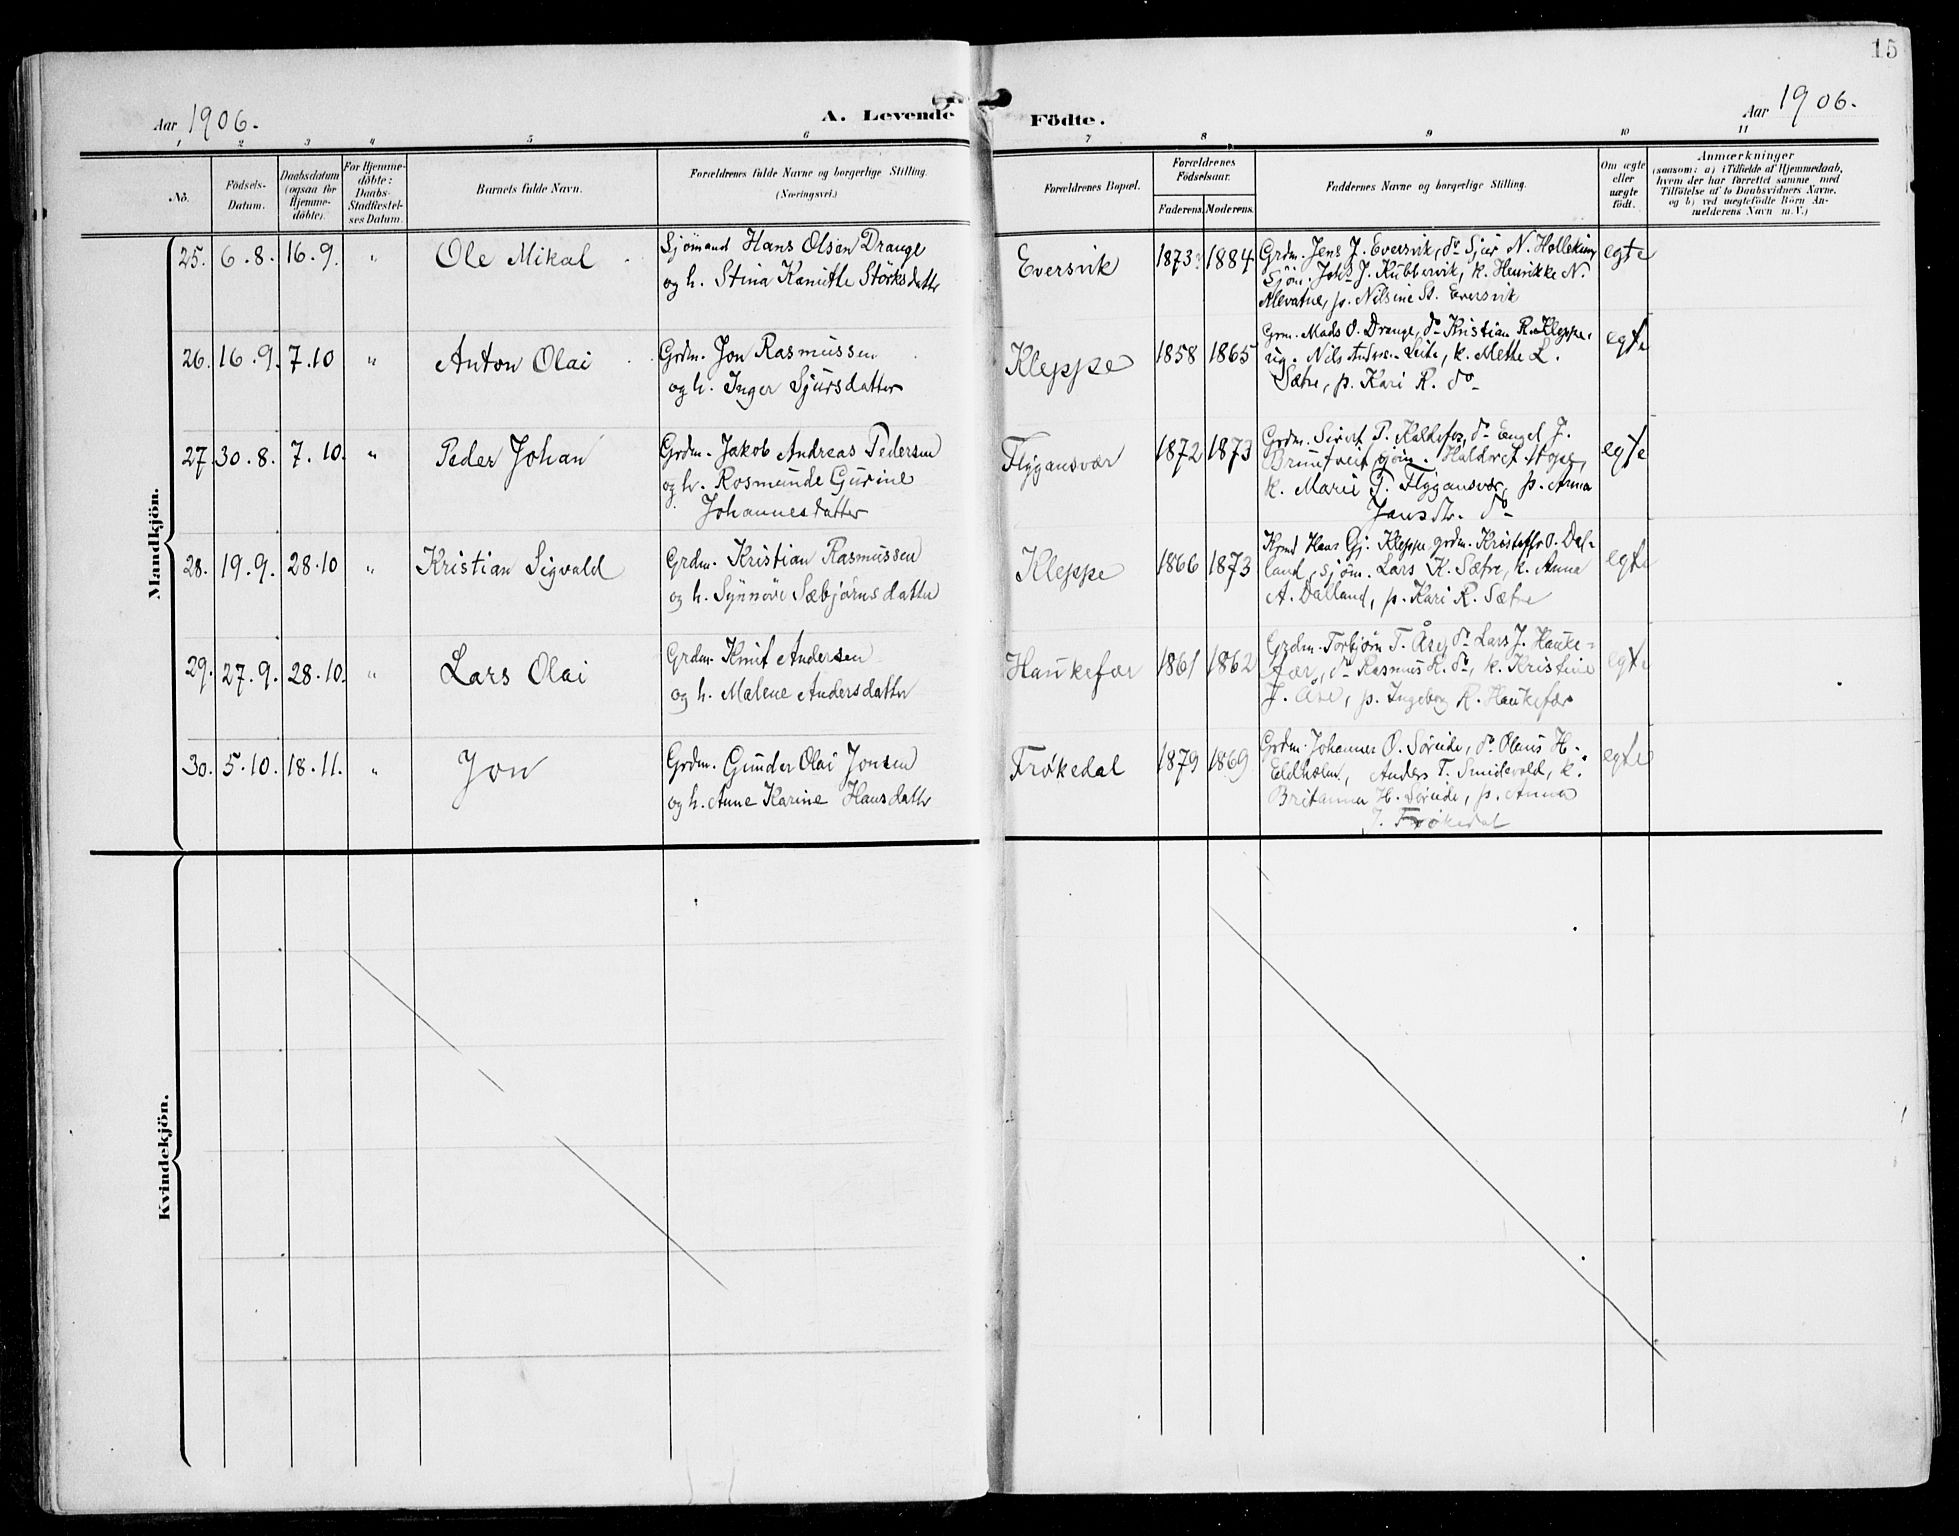 15
Aar 1906.
A. Levende Födte.
Aar 1906.
1 2 3 4 5 6 7 8 9 10 11
No.
Födsels-
Datum.
Daabsdatum
(ogsaa for
Hjemme-
döbte).
For Hjemme-
döbte:
Daabs-
Stadfæstel-
ses Datum.
Barnets fulde Navn.
Forældrenes fulde Navne og borgerlige Stilling.
(Næringsvei.)
Forældrenes Bopæl.
Forældrenes
Födselsaar.
Faderens. Moderens.
Faddernes Navne og borgerlige Stilling.
Om ægte
eller
uægte
født.
Anmærkninger
(saasom: a) i Tilfælde af Hjemmedaab,
hvem der har forrettet samme med
Tilföielse af to Daabsvidners Navne,
og b) ved uægtefödte Börn An-
melderens Navn m. V.)
Mandkjön.
25. 6.8. 16.9. " Ole Mikal
Sjömand Hans Olsen Drange
og h. Stina Kamitte Störksdatter
Eversvik 1873 1884
Grdm. Jens J. Eversvik, do Sjur N. Hollekim
Sjöm. Johs J. Kubbervik, k. Henrikke N.
Alvatne, p. Nilsine St. Eversvik
egte
26. 16.9. 7.10 " Anton Olai
Grdm. Jon Rasmussen
og h. Inger Sjursdatter
Kleppe 1858 1865
Grm. Mads O. Drange, do Kristian R. Kleppe,
ug. Nils Anders. Leite, k. Mette L.
Sætre, p. Kari R. do
egte
27. 30.8. 7.10. " Peder Johan
Grdm. Jakob Andreas Pedersen
og h. Rosmunde Gurine
Johannesdatter
Flygansvær 1872 1873
Grdm. Sivert P. Kaldefos, do Engel J.
Bruntveit, sjöm. Haldvet Stope,
k. Marie P. Flygansvær, p. Anna
Jansdtr. do
egte
28. 19.9. 28.10 " Kristian Sigvald
Grdm. Kristian Rasmussen
og h. Synnöve Sæbjörnsdatter
Kleppe 1866 1873
Kjmd Hans Gj. Kleppe, grdm. Kristoffer O. Dal-
land, sjöm. Lars K. Sætre, k. Anna
A. Dalland, p. Kari R. Sætre
egte
29. 27.9. 28.10. " Lars Olai
Grdm. Knut Andersen
og h. Malene Andersdatter
Haukefær 1861 1862
Grdm. Torbjörn T. Åse, do Lars J. Hauke-
fær, do Rasmus H. do, k. Kristine
J. Åse, p. Ingeborg K. Haukefær
egte
30. 5.10. 18.11. " Jon
Grdm. Gunder Olai Jonsen
og h. Anne Karine Hansdatter
Frøkedal 1879 1869
Grdm. Johannes O. Søreide, do Olaus H.
Eldholm, Anders T. Smidevold, k.
Britanna H. Søreide, p. Anna
J. Frøkedal
egte
Kvindekjön.